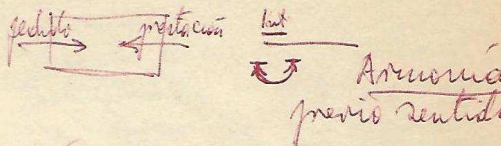 pedido prestación Int
Armonía
previo sentido